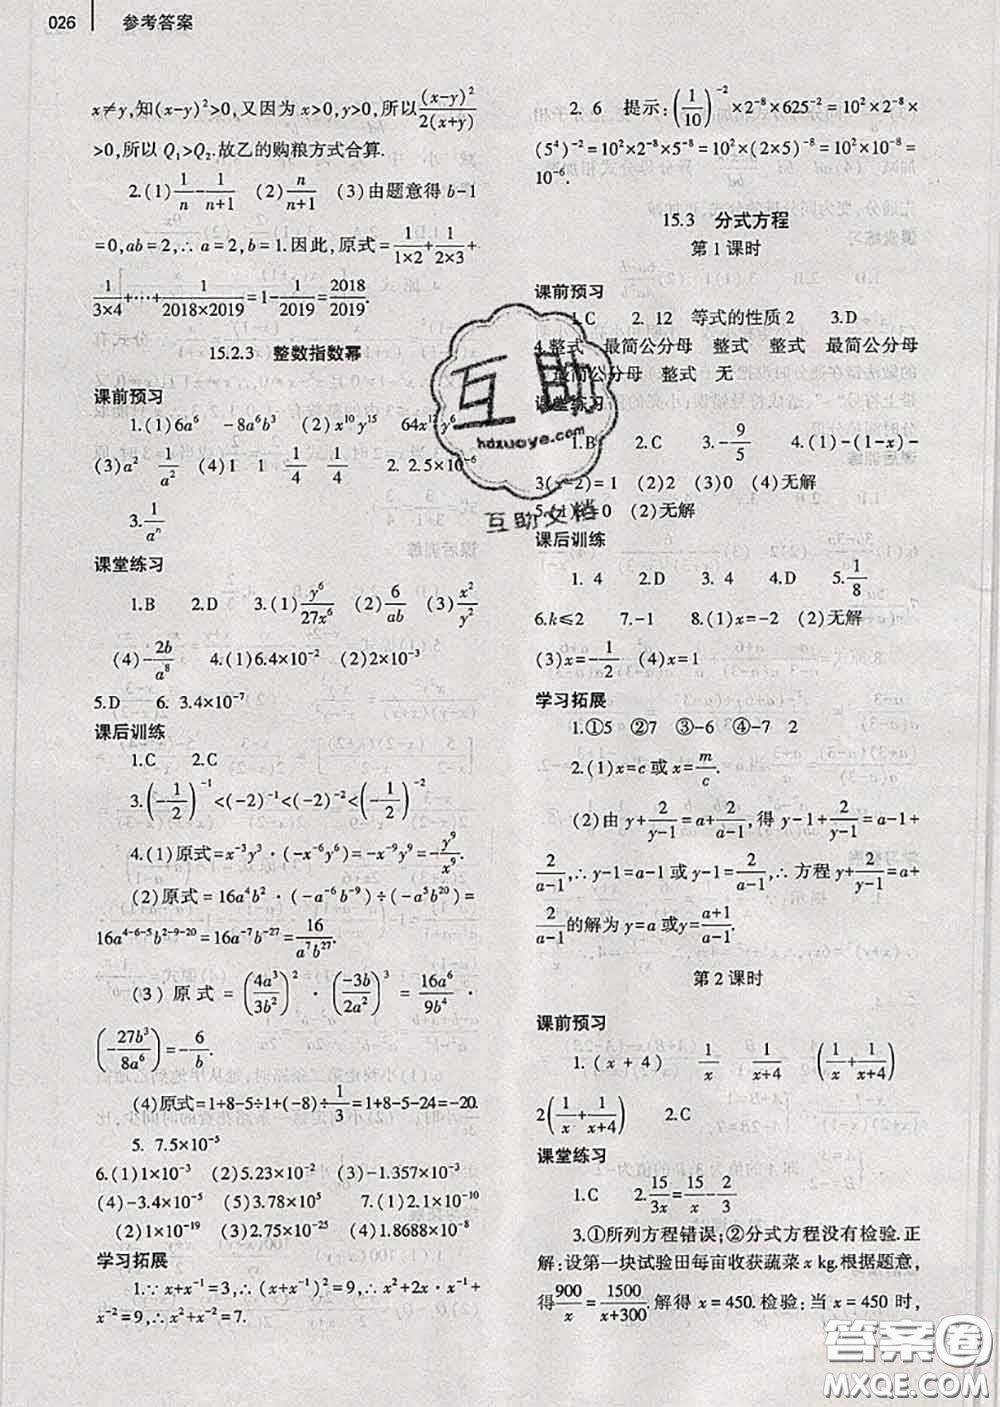 026 参考答案
x≠y,知(x-y)²>0,又因为 x>0,y>0,所以(x-y)²/2(x+y)
>0,所以 Q₁>Q₂.故乙的购粮方式合算.
2.(1)1/n-1/(n+1) (2)n/(n+1) (3)由题意得 b-1
=0,ab=2,∴a=2,b=1.因此,原式=1/(1×2)+1/(2×3)+
1/(3×4)+…+1/(2018×2019)=1-1/2019=2018/2019.
15.2.3 整数指数幂
课前预习
1.(1)6a⁶ -8a⁶b³ (2)x¹⁰y¹⁵ 64x¹²y⁶
(3)a² 1/a² (4)1 1 1/4 1/4 2. 2.5×10⁻⁶
3.1/aⁿ
课堂练习
1.B 2.D 3.(1)y⁶/27x⁶ (2)6/ab (3)x²/y²
(4)-2b/a⁸ 4.(1)6.4×10⁻² (2)2×10⁻²
5.D 6. 3.4×10⁻⁷
课后训练
1.C 2.C
3.(-1/2)⁻¹<(-2)⁻¹<(-2)⁻²<(-1/2)⁻²
4.(1)原式=x⁻³y³·(-x⁻⁶y⁶)=-x⁻⁹y⁹=-y⁹/x⁹.
(2)原式=16a⁴b²·(-a⁻⁶b⁻⁹)÷(-a⁵b²⁰)=
16a⁴⁻⁶⁻⁵b²⁻⁹⁻²⁰=16a⁻⁷b⁻²⁷=16/a⁷b²⁷.
(3)原式=(4a³/3b²)²·(-3b/2a²)³=16a⁶/9b⁴·
(-27b³/8a⁶)=-6/b.
(4)原式=1+8-5÷1+(-8)÷1/3=1+8-5-24=-20.
5. 7.5×10⁻⁵
6.(1)1×10⁻³ (2)5.23×10⁻² (3)-1.357×10⁻³
(4)-3.4×10⁻⁵ (5)3.78×10⁵ 7.(1)2.1×10⁻⁵
(2)1×10⁻¹⁹ (3)2.75×10⁻²⁵ (4)1.8688×10⁻⁸
学习拓展
1.∵x+x⁻¹=3,∴(x+x⁻¹)²=9,∴x²+2x·x⁻¹+
x⁻²=9,∴x²+x⁻²=7.
2. 6 提示:(1/10)⁻²×2⁻⁸×625⁻²=10²×2⁻⁸×
(5⁴)⁻²=10²×2⁻⁸×5⁻⁸=10²×(2×5)⁻⁸=10²×10⁻⁸=
10⁻⁶.
15.3 分式方程
第1课时
课前预习
1.C 2. 12 等式的性质2 3.D
4.整式 最简公分母 整式 整式 最简公分母
最简公分母 整式 无
课堂练习
1.B 2.C 3.-9/5 4.(1)-(1-x)-
3(x-2)=1 (2)2 (3)0 (4)无解
5.(1)x=0 (2)无解
课后训练
1. 4 2.D 3. 4 4.D 5.1/8
6.k≤2 7.-1 8.(1)x=-2 (2)无解
(3)x=-1/2 (4)x=1
学习拓展
1.①5 ②7 ③-6 ④-7 2
2.(1)x=c或x=m/c.
(2)由 y+2/(y-1)=a+2/(a-1),得 y-1+2/(y-1)=a-1+
2/(a-1),∴y-1=a-1或y-1=2/(a-1),∴方程y+2/(y-1)=a+
2/(a-1)的解为y=a或y=(a+1)/(a-1).
第2课时
课前预习
1.(x+4) 1/x 1/(x+4) (1/x+1/(x+4))
2(1/x+1/(x+4)) 2.C
课堂练习
1.C 2.15/3x=15/x-2/3
3.①所列方程错误;②分式方程没有检验.正
解:设第一块试验田每亩收获蔬菜 x kg.根据题意,
得900/x=1500/(x+300).解得 x=450.检验:当 x=450 时,
互助
hdzuoye.com
互助文档
答案圈
MXQE.COM